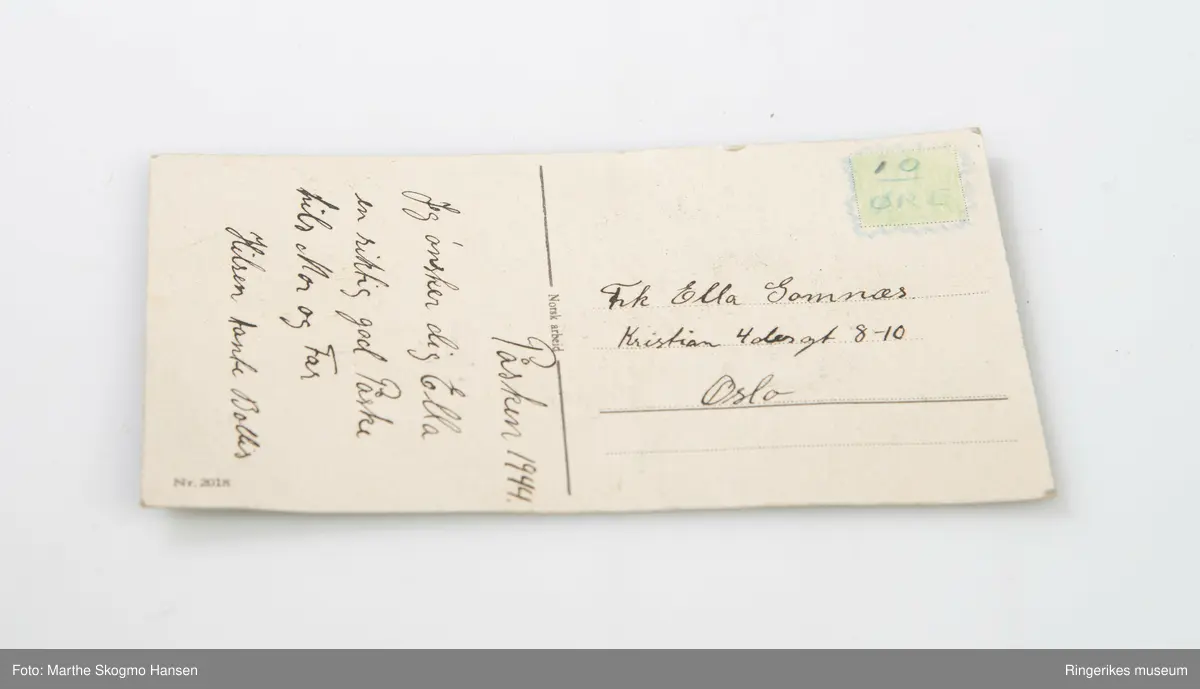 Påsken 1944.
Jeg ønsker dig Ella
en riktig god Påske
hils Mor og Far
Hilsen tante Bollis
Nr. 2018
Norsk arbeid
10
ØRE
Frk Ella Somnæs.
Kristian 4desgt 8-10
Oslo
Foto: Marthe Skogmo Hansen
Ringerikes museum